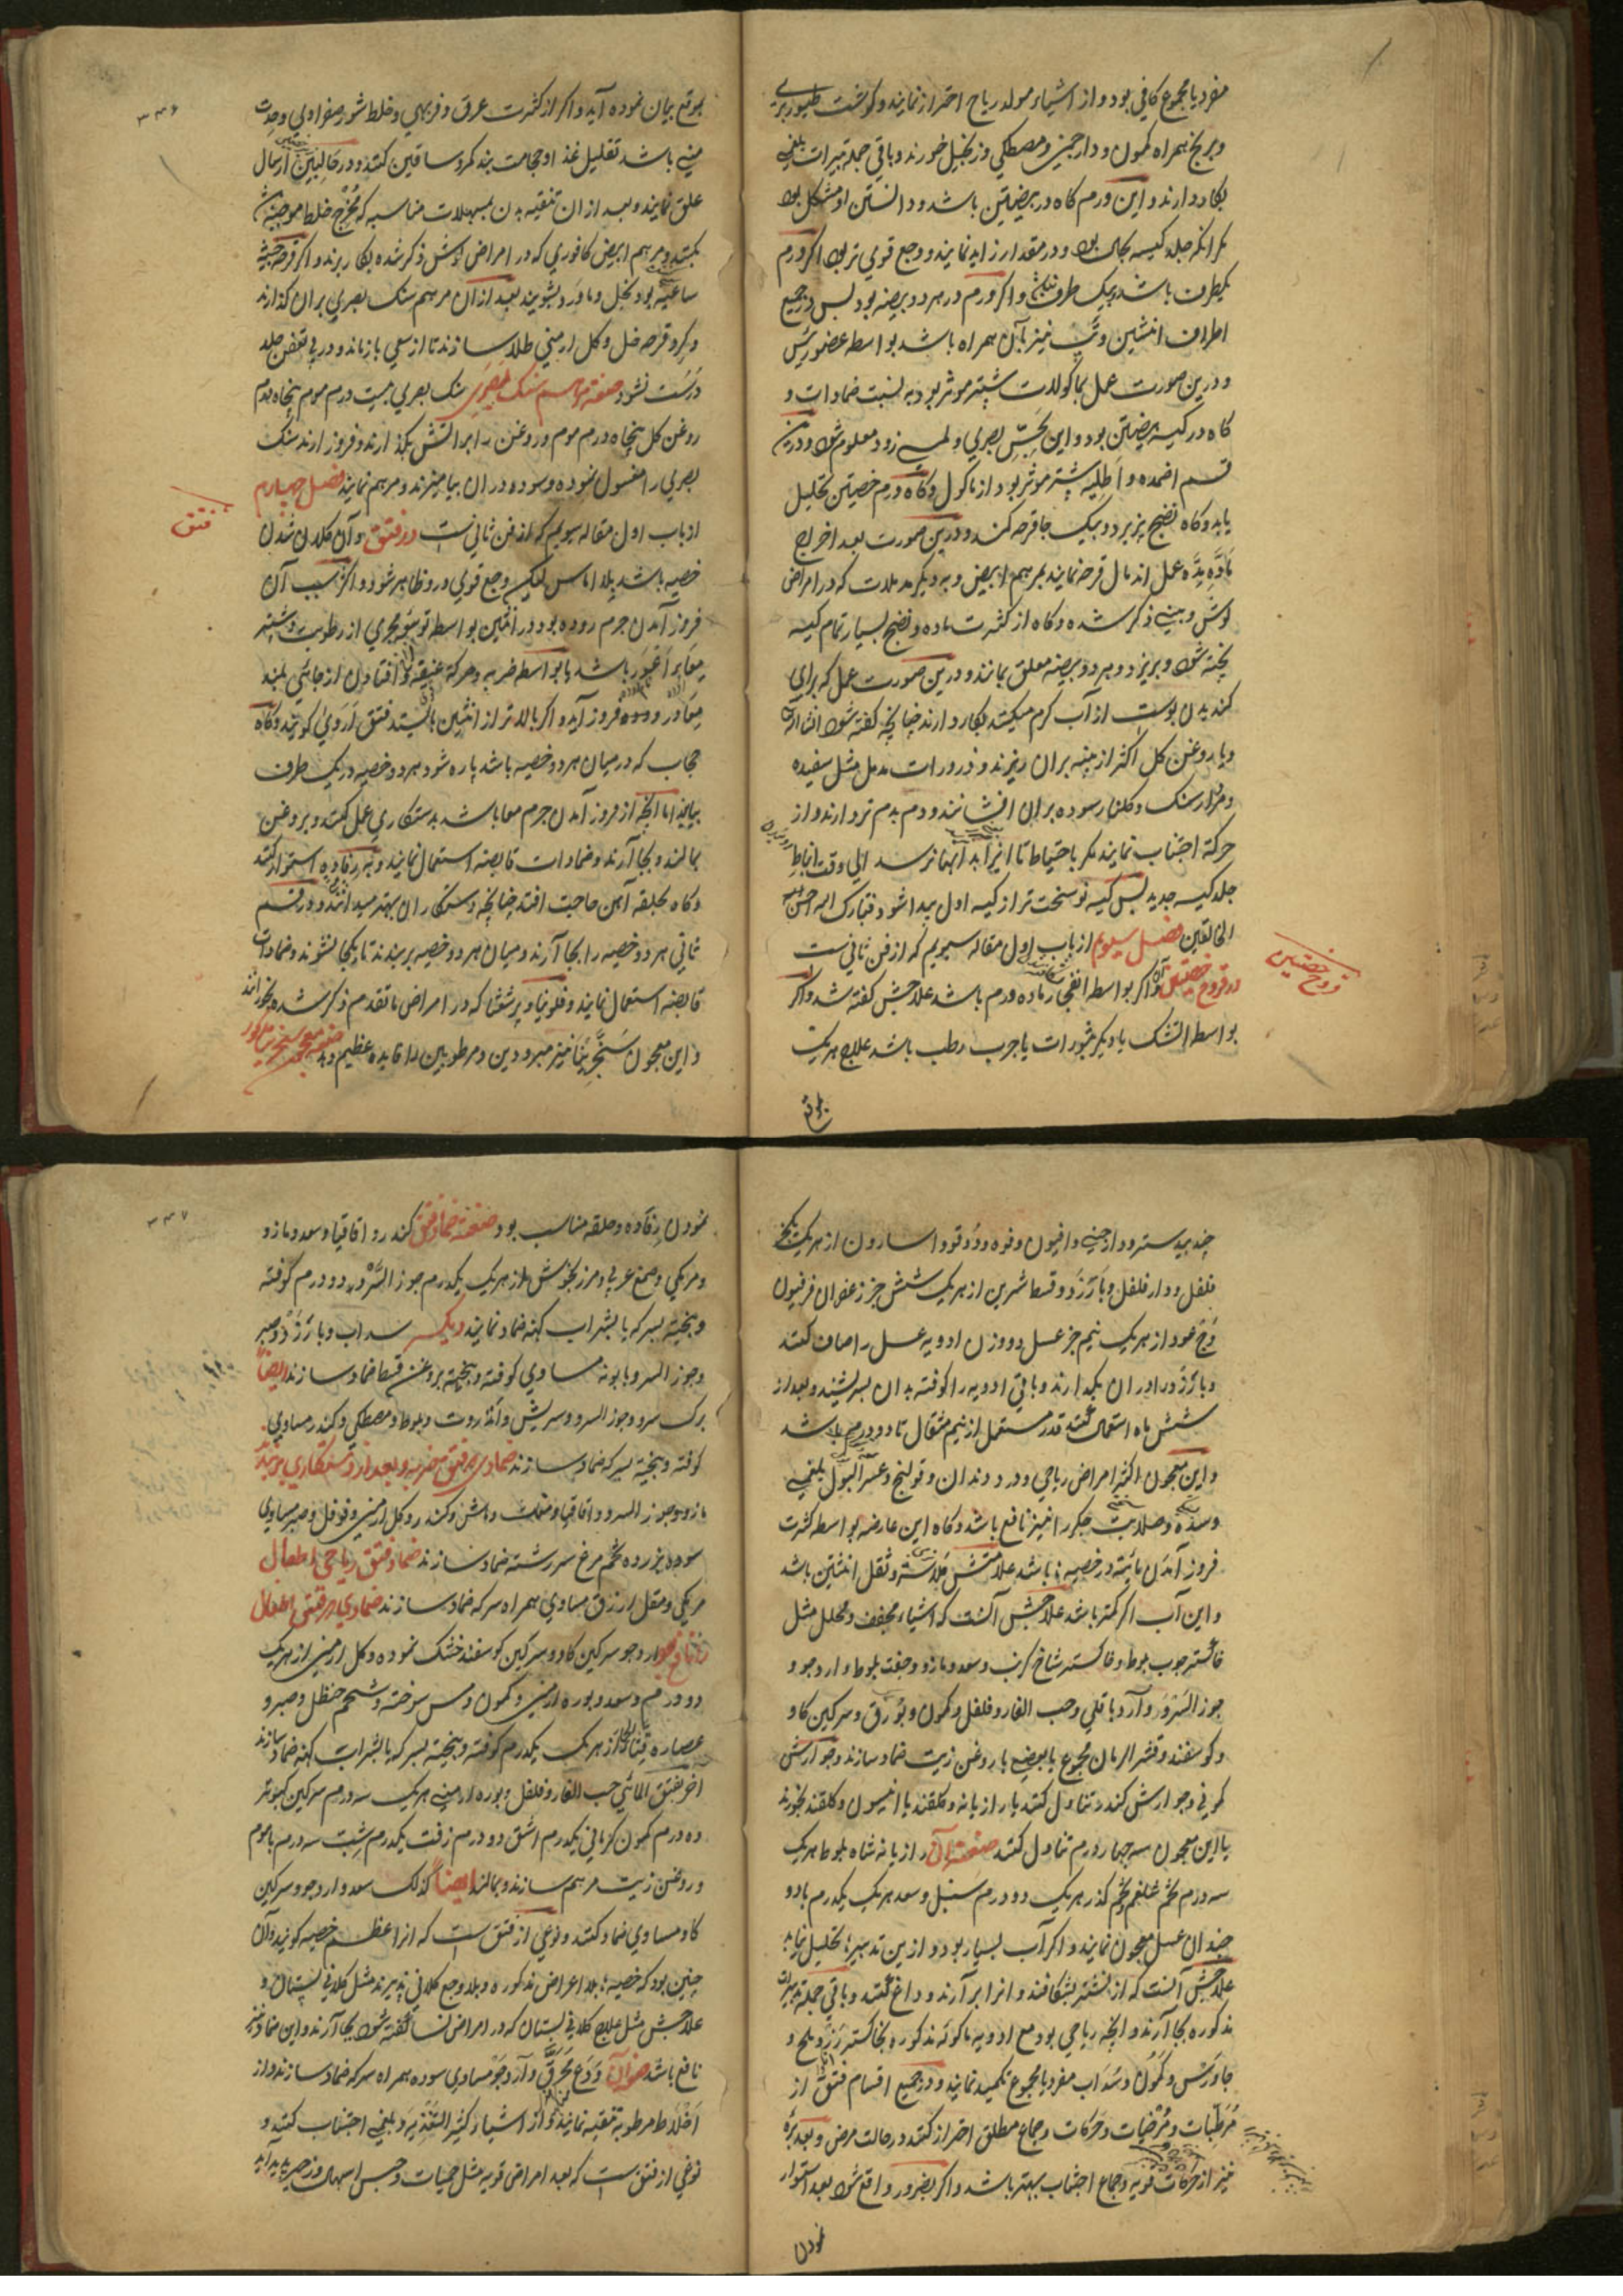 مفرد یا مجموع کافی بود و از اشیاء مولد ریاح احتراز نمایند و کوشت طیور بری
و برنج همراه کمون و دارچینی و مصطکی و زنجبیل خورند و باقی جمله تدبیرات بلغمی
بکار دارند و این ورم کاه در بیضتین باشد و دانستن او مشکل بود
مکر انکه جلد کیسه بحال بود و در مقدار زاید نمایند و وجع قوی تر بود اکر ورم
یکطرف باشد بیک طرف و اکر ورم در هر دو بیضه بود بس در جمیع
اطراف انثیین و تب نیز با آن همراه باشد بواسطه عضو رئیس
و درین صورت عمل بماکولات بیشتر موثر بود به نسبت ضمادات و
کاه در کیسه بیضتین بود و این بحس بصری و لمسی زود معلوم شود و درین
قسم اضمده و اطلیه بیشتر موثر بود از ماکول و کاه ورم خصیتین تحلیل
یابد و کاه نضج پذیرد و بیک جا قرحه کند و درین صورت بعد اخراج
ماده مده عمل اندمال قرحه نمایند بمرهم ابیض و به دیکر مدملات که در امراض
کوش و بینی ذکر شده و کاه از کثرت ماده و نضج بسیار تمام کیسه
پخته شود و بریزد و هر دو بیضه معلق بمانند و درین صورت عمل که برای
کندیدن پوست از آب کرم میکنند بکار دارند چنانچه کفته شود انشا الله
و یا روغن کل اکثر از پنبه بران ریزند و ذرورات مدمل مثل سفیده
و مردارسنک و کلنار سوده بران افشانند و دم بدم تر و دارند و از
حرکة اجتناب نمایند مکر باحتیاط تا ایرا بد آنها نرسد الی وقت انباط
جلد کیسه جدید پس کیسه نو سخت تر از کیسه اول پیدا شود فتبارک الله احسن
الخالقین فصل سیوم از باب اول مقاله سیویم که از فن ثانی ست
در قروح خصیتین و آن اکر بواسطه انفجار ماده ورم باشد علاجش کفته شد و اکر
بواسطه اتشک یا دیکر بثورات یا جرب رطب باشد علاج هریک
قروح خصیتین
بموقع
۳۳۶
بموقع بیان نموده آید و اکر از کثرت عرق و فربهی و خلط شور صفراوی و حدت
منی باشد تقلیل غذا و حجامت بند کمر و ساقین کنند و در حالبین ارسال
علق نمایند و بعد از ان تنقیه بدن بمسهلات مناسبه که مخرج خلط موجبه
بکنند و مرهم ابیض کافوری که در امراض کوش ذکر شده بکار برند و اکر قرحه خبیثه
ساعیه بود بخل و ماورد بشویند بعد از ان مرهم سنک بصری بران کذارند
و کرد قرحه خل و کل ارمنی طلا سازند تا از سعی باز ماند و در پی تعفن جلد
درست نشود صفة مرهم سنک بصری سنک بصری بیست درم موم پنجاه درم
روغن کل پنجاه درم موم و روغن را بر اتش بکذارند و فروز ارند سنک
بصری را مغسول نموده و سوده در ان بیامیزند و مرهم نمایند فصل چهارم
از باب اول مقاله سیویم که از فن ثانی ست در فتق و آن کلان شدن
خصیه باشد بلا اماس لیکن وجع قوی در و ظاهر شود و اکثر سبب آن
فروز آمدن جرم روده بود در انثیین بواسطه توسع مجری از رطوبت و بیشتر
معابر اعور باشد یا بواسطه ضربه و حرکة عنیفه و افتادن از جائی بلند
معا در روده فروز آید و اکر بالاتر از انثیین بایستد فتق اروی کویند و کاه
حجاب که در میان هر دو خصیه باشد پاره شود هر دو خصیه در یک طرف
بیایند اما انچه از فروز آمدن جرم معا باشد بدستکاری عمل کنند و بروغن
بمالند و بجا آرند و ضمادات قابضه استعمال نمایند و به رفاده استوار کنند
و کاه بحلقه آهن حاجت افتد چنانچه دستکاران بهتر میدانند و در قسم
ثانی هر دو خصیه را بجا آرند و میان هر دو خصیه بر بندند تا یکجا نشوند و ضمادات
قابضه استعمال نمایند و فلونیا و پرشعثا که در امراض ما تقدم ذکر شده بخورانند
و این معجون سنجرینا نیز مبرودین و مرطوبین را فایده عظیم دهد صفة معجون سنجرینا مذکور
فتق
جندبیدستر و دارچینی و افیون و فوه و دوقو و اسارون از هریک یک جز
فلفل و دارفلفل و بارزد و قسط شیرین از هریک شش جز زعفران فرفیون
وج عود از هریک نیم جز عسل دو وزن ادویه عسل را صاف کنند
و بارزد را دران بکدارند و باقی ادویه را کوفته بدان بسرشند و بعد از
شش ماه استعمال کنند قدر مستعمل از نیم مثقال تا دو درم باشد
و این معجون اکثر امراض ریاحی و درد دندان و قولنج و عسر البول بلغمی
و سده و صلابت جکر را نیز نافع باشد و کاه این عارضه بواسطه کثرت
فروز آمدن مائیه در خصیه باشد علامتش ملاسة و ثقل انثیین باشد
و این آب اکر کمتر باشد علاجش آنست که اشیاء مجفف و محلل مثل
خاکستر چوب بلوط و خاکستر شاخ کرنب و سعد و مازو و جفت بلوط و ارد جو و
جوز السرو و آرد باقلی و حب الغار و فلفل و کمون و بورق و سرکین کاو
و کوسفند و قشر الرمان مجموع یا بعضی با روغن زیت ضماد سازند و جوارش
کمونی و جوارش کندر تناول کنند یا رازیانه و کلقند یا انیسون و کلقند بخورند
یا این معجون سه چهار درم تناول کنند صفة آن رازیانه شاه بلوط هریک
سه درم تخم شلغم تخم کذر هریک دو درم سنبل و سعد هریک یکدرم با دو
چندان عسل معجون نمایند و اکر آب بسیار بود و ازین تدبیر تحلیل نیابد
علاجش آنست که از نشتر بشکافند و انرا بر آرند و داغ کنند و باقی جمله تدبیرات
مذکوره بجا آرند و انچه ریاحی بود مع ادویه ماکوله مذکوره بخاکستر رز و ملح و
جاورس و کمون و سداب مفرد یا مجموع تکمید نمایند و در جمیع اقسام فتق از
مرطبات و مرخیات و حرکات و جماع مطلق احتراز کنند در حالت مرض و بعد برء
نیز از حرکات قویه و جماع اجتناب بهتر باشد و اکر بضرور واقع شود بعد استوار
نمودن
۳۳۷
نمودن رفاده و حلقه مناسب بود صفة ضماد فتق کندر و اقاقیا و سعد و مازو
و مرمکی و صمغ عربی و مرزنجوش از هریک یکدرم جوز السرو دو درم کوفته
و بیخته بسرکه یا بشراب کهنه ضماد نمایند دیکر سداب و بارزد و صبر
و جوز السرو بابونه مساوی کوفته و بیخته بروغن قسط ضماد سازند ایضاً
برک سرو و جوز السرو و سریش و انذروت و بلوط و مصطکی و کندر مساوی
کوفته و بیخته بسرکه ضماد سازند ضماد دیکر فتق ضربه و بعد از دستکاری بندند
مازو و جوز السرو و اقاقیا و مغاث و ماش و کندر و کل ارمنی و فوفل و صبر مساوی
سوده بزرده تخم مرغ سرشته ضماد سازند ضماد فتق ریاحی اطفال
مرمکی و مقل ازرق مساوی همراه سرکه ضماد سازند ضماد دیکر فتق اطفال
ارد جو سرکین کاو و سرکین کوسفند خشک نموده و کل ارمنی از هریک
دو درم و سعد و بوره ارمنی و کمون و مس سوخته و شحم حنظل و صبر و
عصاره قثاء الحمار از هریک یکدرم کوفته و بیخته بسرکه یا بشراب کهنه ضماد سازند
اخر بفتق المائی حب الغار و فلفل و بوره ارمنی هریک سه درم سرکین کبوتر
ده درم کمون کرمانی یکدرم اشق دو درم زفت یکدرم شبت سه درم با موم
و روغن زیت مرهم سازند و بمالند ایضاً کذلک سعد و ارد جو و سرکین
کاو مساوی ضماد کنند و نوعی از فتق ست که انرا عظم خصیه کویند و آن
چنین بود که خصیه بلا اعراض مذکوره و بلا وجع کلانی پذیرند مثل کلانی پستان و
علاجش مثل علاج کلانی پستان که در امراض نسا کفته شود بجا آرند و این ضماد نیز
نافع باشد صفة آن ودع محرق و آرد جو مساوی سوده همراه سرکه ضماد سازند و از
اخلاط مرطوبه تنقیه نمایند و از اشیاء کثیر التغذیه و بلغمی اجتناب کنند و
نوعی از فتق ست که بعد امراض قویه مثل حمیات و حبس اسهال و زحیر پدید آید